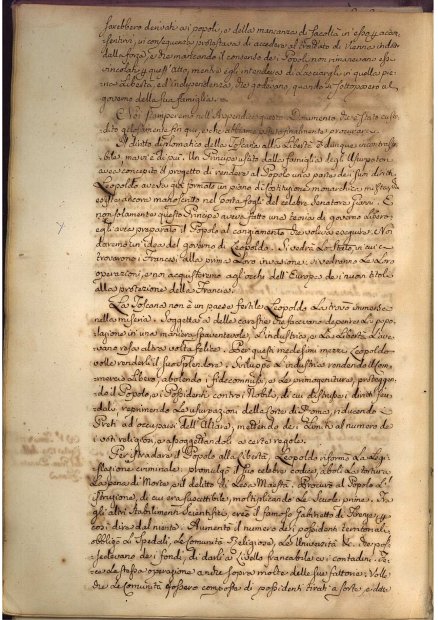 sarebbero derivati ai popoli, e della mancanza di facoltà in esso p. accon
sentirvi, in conseguenza protestava di accedere al trattato di Vienna indotto
dalla forza, e che mancando il consenso de' Popoli non rimanevano essi
vincolati p. quest'atto, mentre egli intendeva di lasciargli in quella pie
na Libertà, ed'indipendenza, che godevano, quando si sottoposero al
governo della sua famiglia.
E Noi stamperemo nell'Appendice questo Documento, che è stato cu
dito gelosamente fin qui, e che abbiamo potuto finalmente procurarci.
Il diritto diplomatico della Toscana alla Libertà è dunque incontrasta
bile, ma vi è di più. Un Principe uscito dalla famiglia degli Usurpatori
avea concepito il progetto di rendere al Popolo una parte de' suoi diritti.
Leopoldo aveva già formato un piano di Costituzione monarchica mista, che
esiste ancora manoscritto nel portafogli del celebre Senatore Gianni. E
non solamente questo Principe aveva fatto una teoria di governo libero,
egli avea preparato il Popolo al cangiamento che voleva eseguire. Noi
daremo un'idea del governo di Leopoldo. Si vedrà Lo Stato, in cui ci
trovarono i Francesi alla prima Loro invasione: si vedranno Le Loro
operazioni, e noi acquisteremo agl'occhi dell'Europa de' nuovi titoli
alla protezione della Francia.
La Toscana non è un paese fertile. Leopoldo La trovò immersa
nella miseria. Soggetta a delle carestie che facevano deperire La popo
lazione in una maniera spaventevole. L'industria, e La Libertà L'ave
vano resa altra volta felice. Per questi medesimi mezzi Leopoldo
volle renderli il suo splendore: Sviluppò L'industria rendendo il com
mercio Libero; abolendo i fidecommissi, e Le primogeniture; proteggen
do il Popolo, e i Possidenti contro i Nobili, di cui distrusse i diritti feu
dali, reprimendo Le usurpazioni della Corte di Roma, riducendo i
Preti ad'occuparsi dell'Altare, mettendo dei Limiti al numero de
i voti religiosi, e assoggettandoli a certe regole.
Per istradare il Popolo alla Libertà, Leopoldo riformò La Legi
slazione criminale: promulgò il suo celebre codice; abolì La tortura
La pena di Morte, e il delitto di Lesa Maestà. Procurò al Popolo L'i
struzione, di cui era suscettibile, moltiplicando Le Scuole prime. Tra
gli altri Stabilimenti Scientifici, creò il famoso Gabinetto di Firenze, p.
così dire dal niente. Aumentò il numero dei possidenti territoriali,
obbligò gli Spedali, Le Comunità Religiose, Le Università &c. che pos
sedevano dei fondi, di darli a Livello francabile ai contadini: fe
ce La stessa operazione anche sopra molte delle sue fattorie: Volle
che Le Comunità fossero composte di possidenti tirati a sorte, e dette